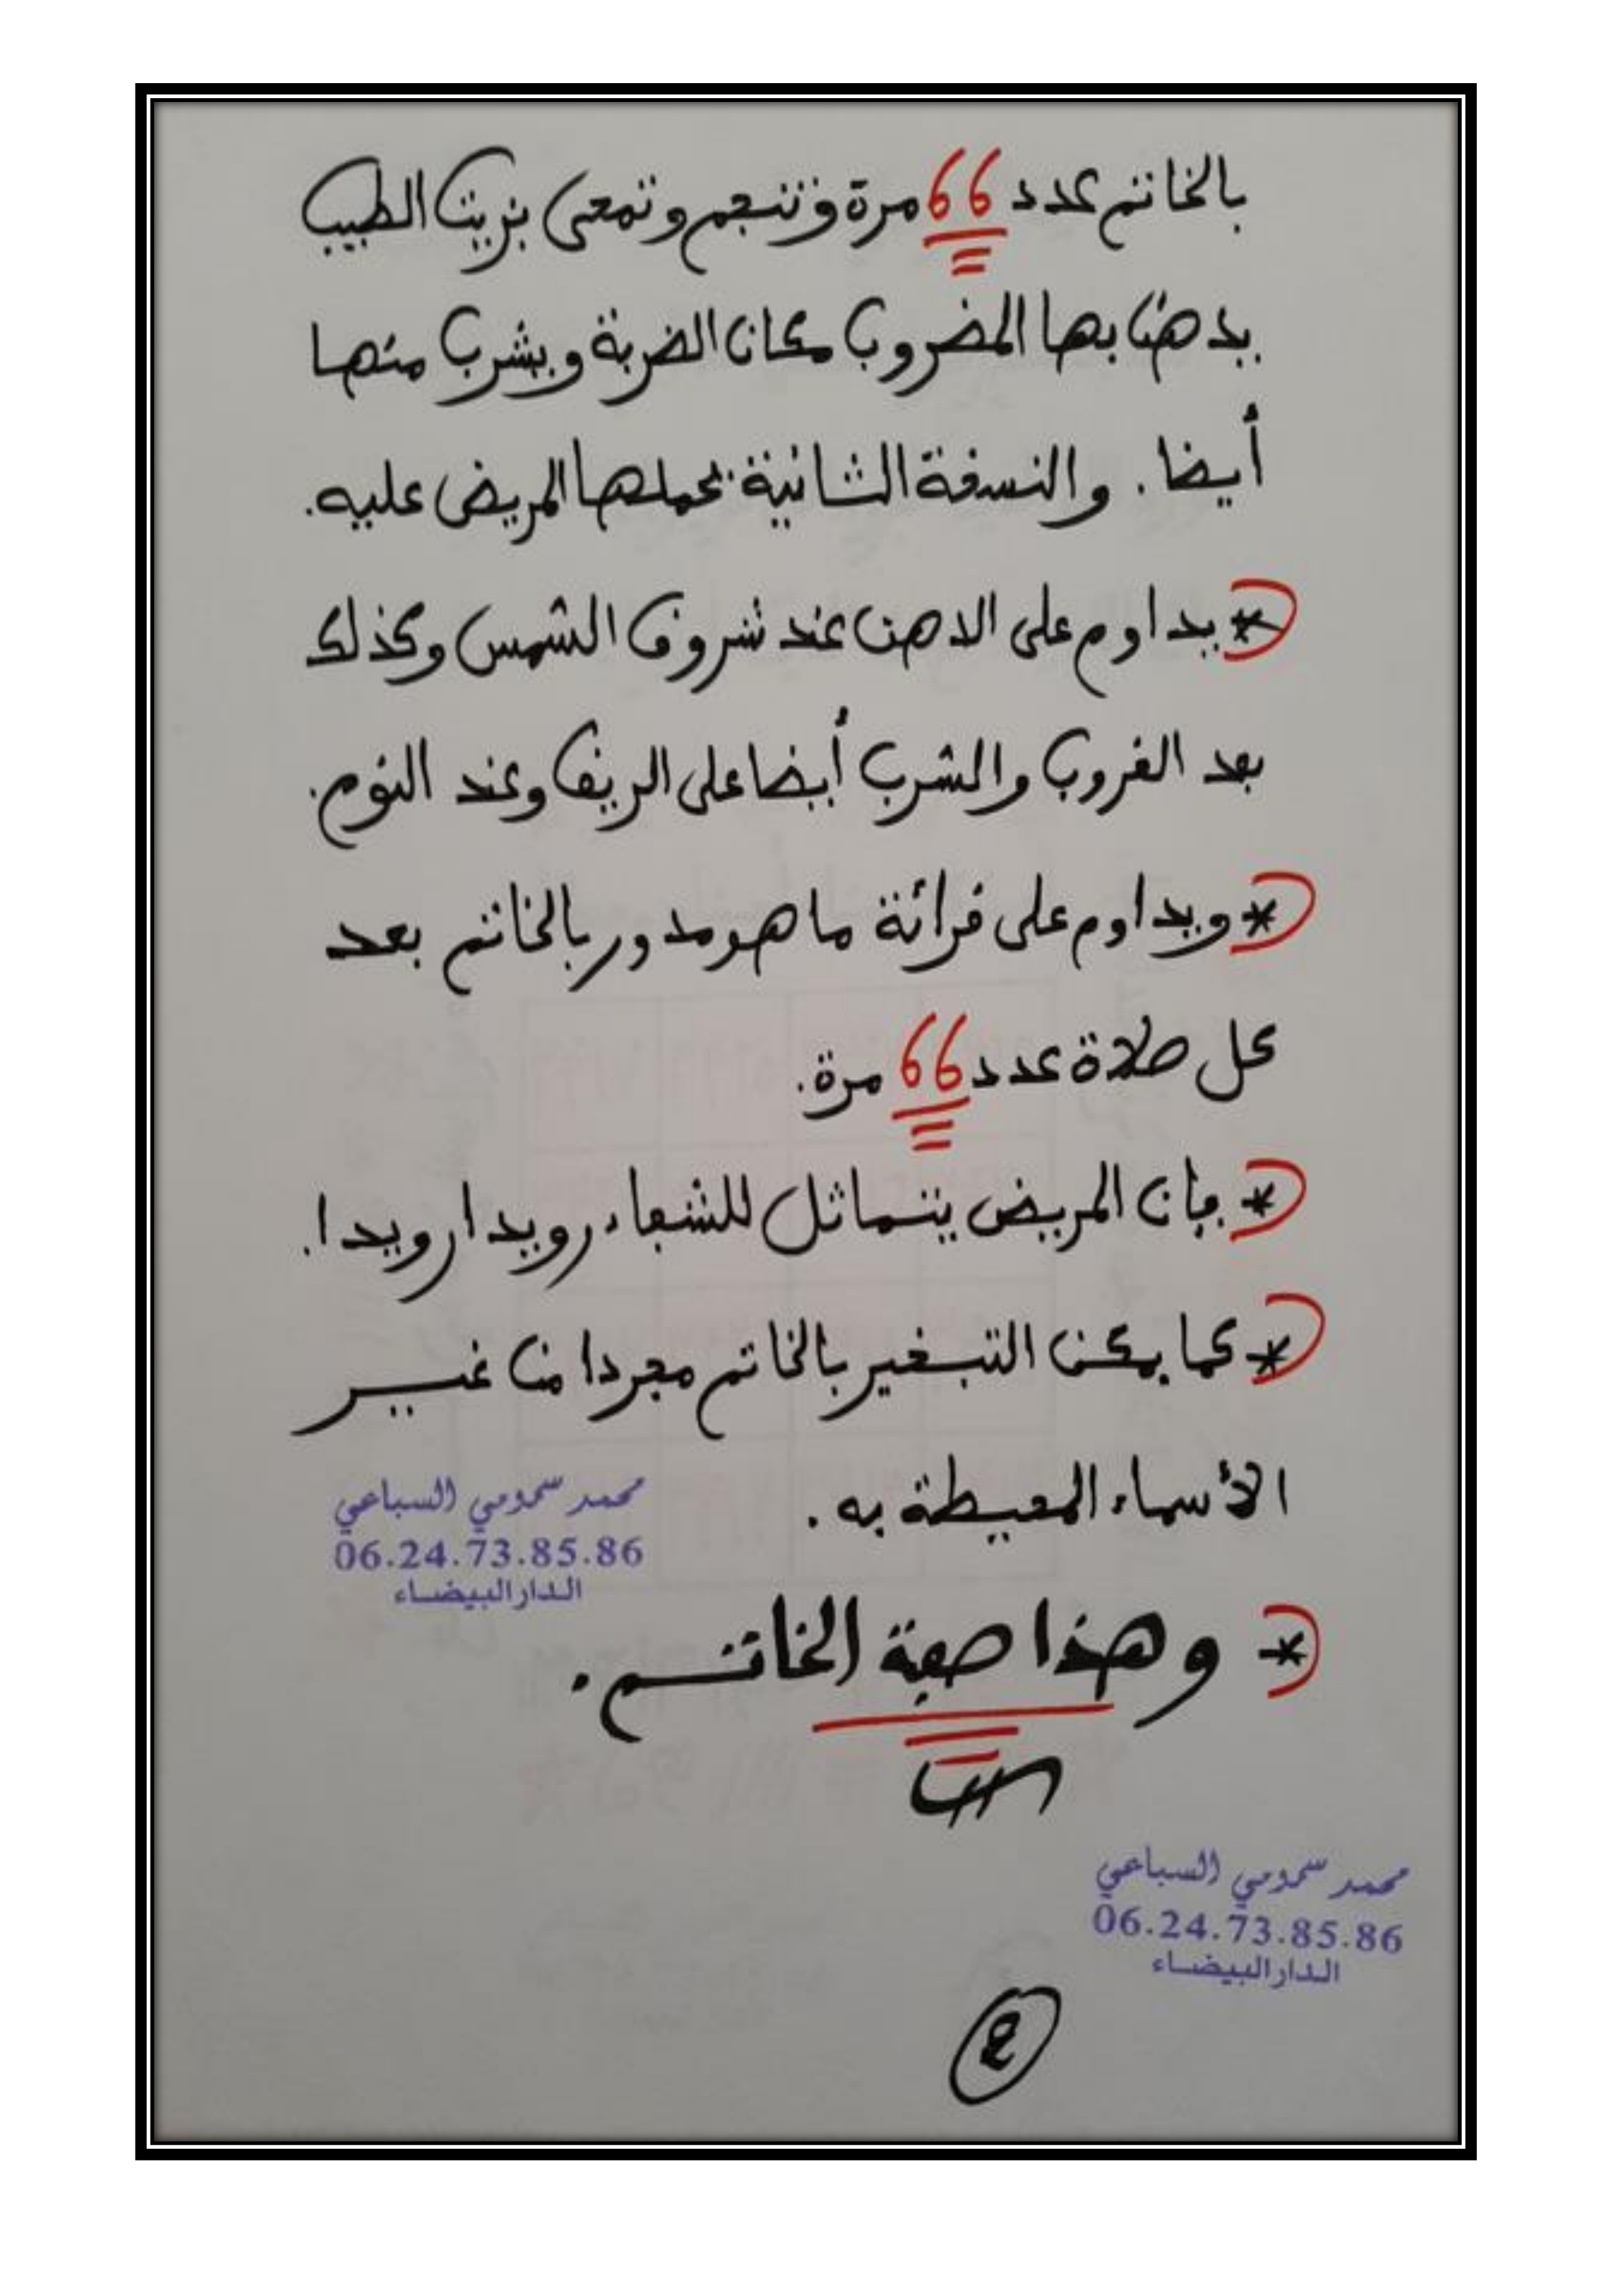 بالخاتم عدد 66 مرة وتنجم وتمحى بزيت الطيب
يدهن بها المضروب مكان الضربة ويشرب منها
أيضا. والنسخة الثانية يحملها المريض عليه.
* يداوم على الادهن عند شروق الشمس وكذلك
بعد الغروب والشرب أيضا على الريق وعند النوم.
* ويداوم على قرائة ما هو مدور بالخاتم بعد
كل صلاة عدد 66 مرة.
* فإن المريض يتماثل للشفاء رويدا رويدا.
* كما يمكن التبخير بالخاتم مجردا من غير
الأسماء المحيطة به.
محمد سمومي السباعي
06.24.73.85.86
الدار البيضاء
* وهذا صفة الخاتم.
محمد سمومي السباعي
06.24.73.85.86
الدار البيضاء
2